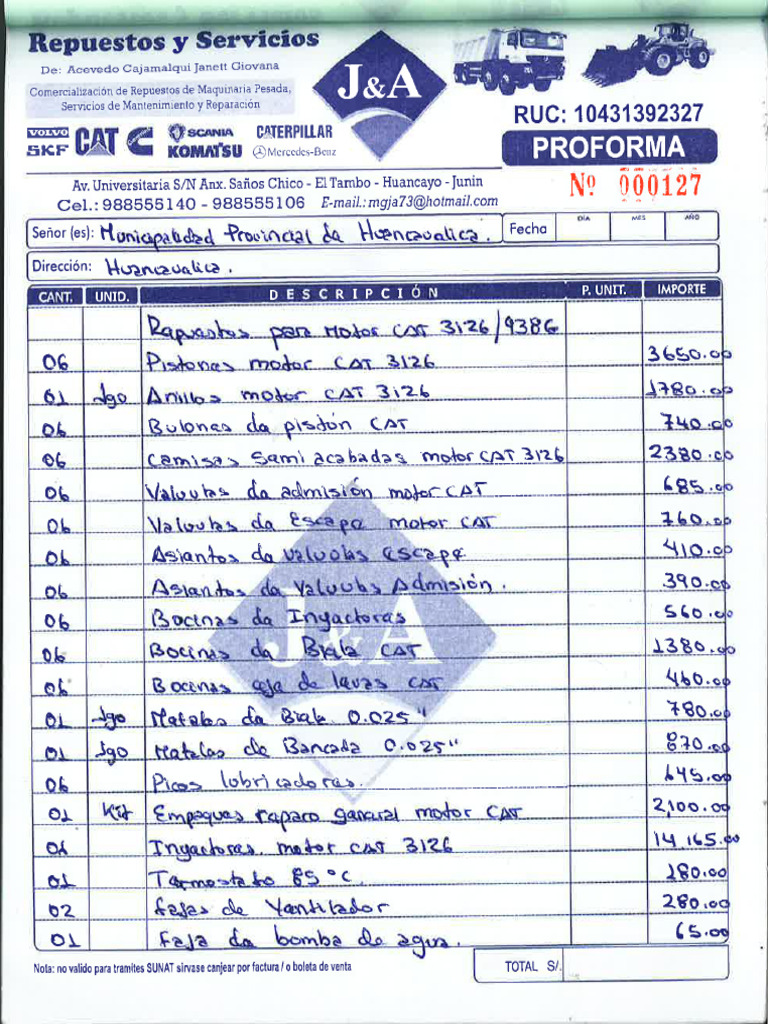 Repuestos y Servicios
De: Acevedo Cajamalqui Janett Giovana
Comercialización de Repuestos de Maquinaria Pesada,
Servicios de Mantenimiento y Reparación
J&A
VOLVO CAT SCANIA CATERPILLAR
SKF KOMATSU Mercedes-Benz
RUC: 10431392327
PROFORMA
Nº 000127
Av. Universitaria S/N Anx. Saños Chico - El Tambo - Huancayo - Junin
Cel.: 988555140 - 988555106 E-mail.: mgja73@hotmail.com
Señor (es): Municipalidad Provincial de Huancavelica. Fecha DÍA MES AÑO
Dirección: Huancavelica.
CANT. UNID. DESCRIPCIÓN P. UNIT. IMPORTE
Repuestos para Motor CAT 3126/938G
06 Pistones motor CAT 3126 3650.00
01 Jgo Anillos motor CAT 3126 1780.00
06 Bulones de pistón CAT 740.00
06 Camisas Semi acabadas motor CAT 3126 2380.00
06 Valvulas de admisión motor CAT 685.00
06 Valvulas de Escape motor CAT 760.00
06 Asientos de valvulas escape 410.00
06 Asientos de Valvulas Admisión. 390.00
06 Bocinas de Inyectores 560.00
06 Bocinas de Biela CAT 1380.00
06 Bocinas eje de levas CAT 460.00
01 Jgo Metales de Biela 0.025" 780.00
01 Jgo Metales de Bancada 0.025" 870.00
06 Picos lubricadores. 645.00
01 Kit Empaques reparo general motor CAT 2,100.00
06 Inyectores motor CAT 3126 14,165.00
01 Termostato 85°C. 180.00
02 fajas de Ventilador 280.00
01 Faja de bomba de agua. 65.00
Nota: no valido para tramites SUNAT sirvase canjear por factura / o boleta de venta
TOTAL S/.